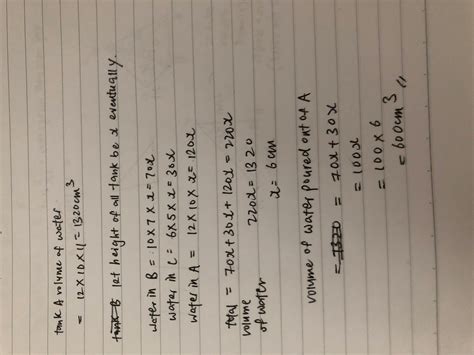 tank A volume of water
= 12 × 10 × 11 = 1320cm³
tank B let height of all tank be x eventually.
Water in B = 10 × 7 × x = 70x
water in C = 6 × 5 × x = 30x
Water in A = 12 × 10 × x = 120x
total volume of water = 70x + 30x + 120x = 220x
220x = 1320
x = 6 cm
volume of water poured out of A
= 1320 = 70x + 30x
= 100x
= 100 × 6
= 600cm³ //